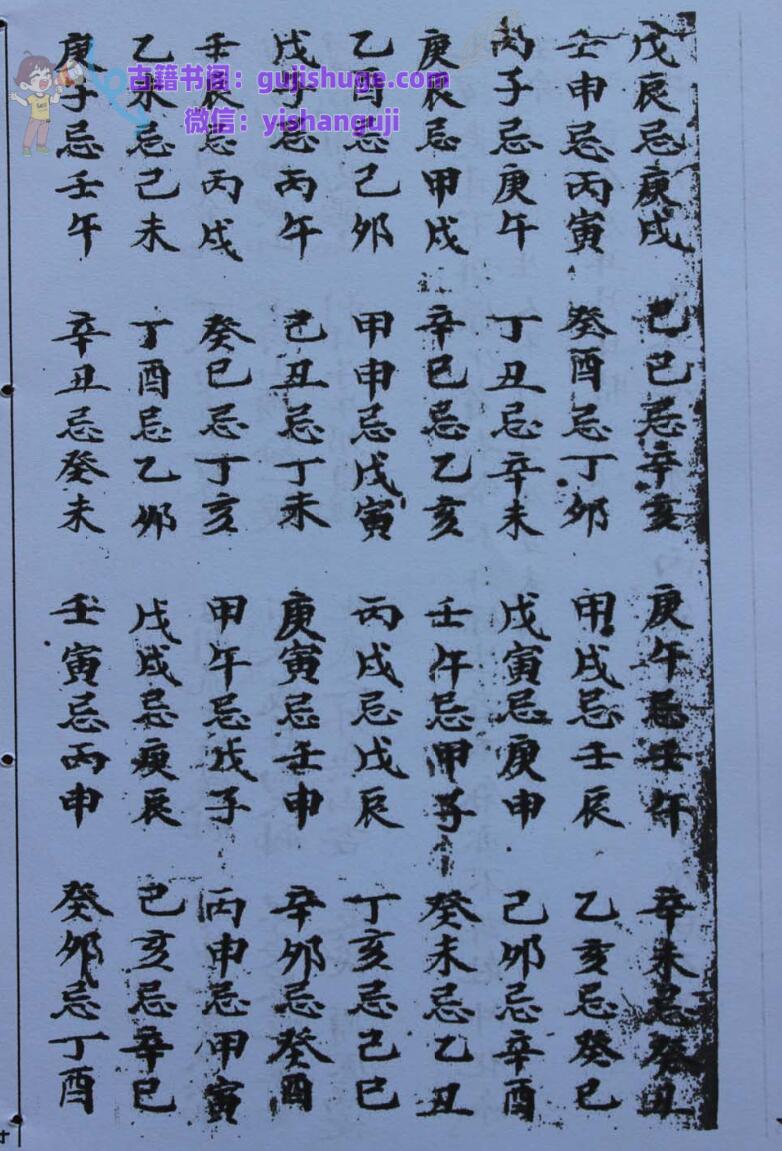 戊辰忌庚戌 己巳忌辛亥 庚午忌壬午 辛未忌癸丑
壬申忌丙寅 癸酉忌丁卯 甲戌忌壬辰 乙亥忌癸巳
丙子忌庚午 丁丑忌辛未 戊寅忌庚申 己卯忌辛酉
庚辰忌甲戌 辛巳忌乙亥 壬午忌甲子 癸未忌乙丑
乙酉忌己卯 甲申忌戊寅 丙戌忌戊辰 丁亥忌己巳
戊子忌丙午 己丑忌丁未 庚寅忌壬申 辛卯忌癸酉
壬辰忌丙戌 癸巳忌丁亥 甲午忌戊子 丙申忌甲寅
乙未忌己未 丁酉忌乙卯 戊戌忌庚辰 己亥忌辛巳
庚子忌壬午 辛丑忌癸未 壬寅忌丙申 癸卯忌丁酉
古籍书阁：gujishuge.com
微信：yishanguji